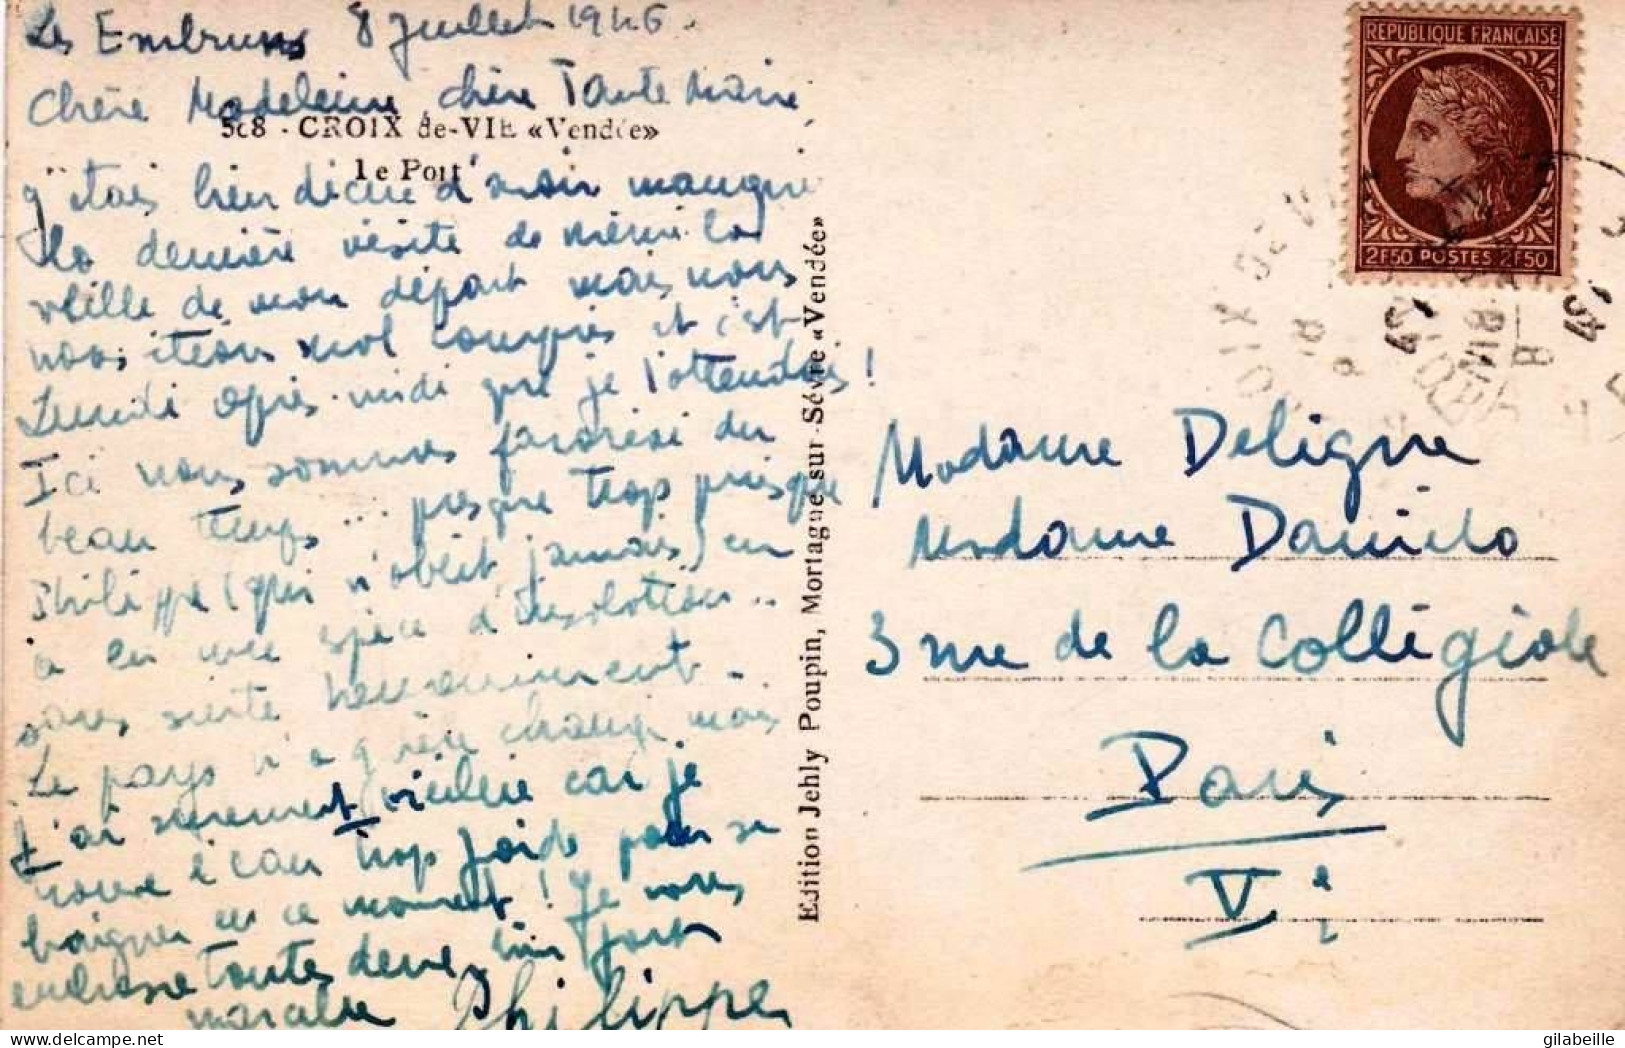 Les Embruns 8 Juillet 1946.
Chère Madeleine, chère Tante Marie,
508 - CROIX de-VIE «Vendée»
le Port
J'étais bien déçue d'avoir manqué
la dernière visite de la
veille de mon départ mais nous
nous étions mal compris et c'est
Lundi après-midi que je l'attendais!
Ici nous sommes favorisé du
beau temps... presque trop puisque
Philippe (qui n'obéit jamais) en
a eu une espèce d'insolation..
sans suite heureusement.
Le pays n'a guère changé mais
j'ai sûrement vieilli car je
trouve l'eau trop froide pour se
baigner en ce moment! Je vous
embrasse toutes deux bien fort
Philippe
Edition Jehly Poupin, Mortagne sur-Sèvre «Vendée»
REPUBLIQUE FRANÇAISE
2F50 POSTES 2F50
Madame Deligne
Madame Danielo
3 rue de la Collégiale
Paris
Ve
gilabeille